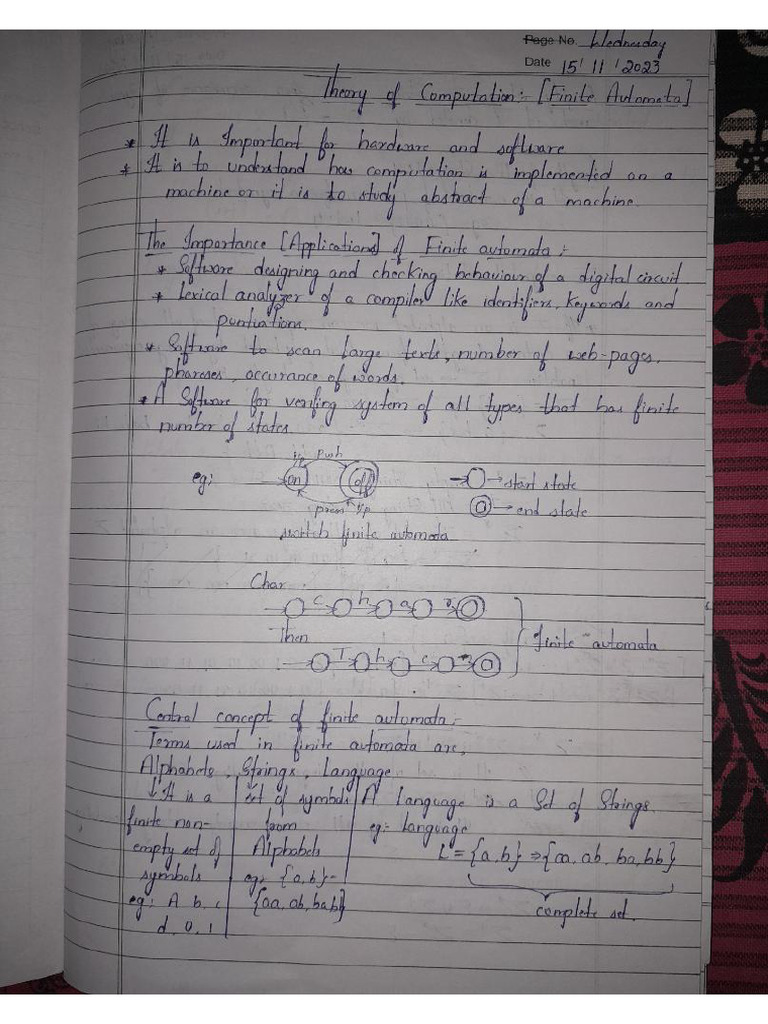 Page No. Wednesday
Date 15/11/2023
Theory of Computation:- [Finite Automata]
* It is Important for hardware and software
* It is to understand has computation is implemented on a
machine or it is to study abstract of a machine.
The Importance [Applications] of Finite automata:
* Software designing and checking behaviour of a digital circuit.
* Lexical analyzer of a compiler like identifiers, keywords and
puntuations.
* Software to scan large texts, number of web-pages.
phareses, occurance of words.
* A Software for verifing system of all types that has finite
number of states
i/p push
eg: on off → start state
press i/p → end state
switch finite automata
Char
c h a r
Then finite automata
T h e
Central concept of finite automata:-
Terms used in finite automata are,
Alphabets, Strings, Language
↓ It is a set of symbols A Language is a Set of Strings.
finite non- from eg:- language
empty set of Alphabets L = {a,b} ⇒ {aa, ab, ba, bb}
symbols eg: {a,b}=
eg: A b, c {aa, ab, ba bb} complete set.
d, 0, 1